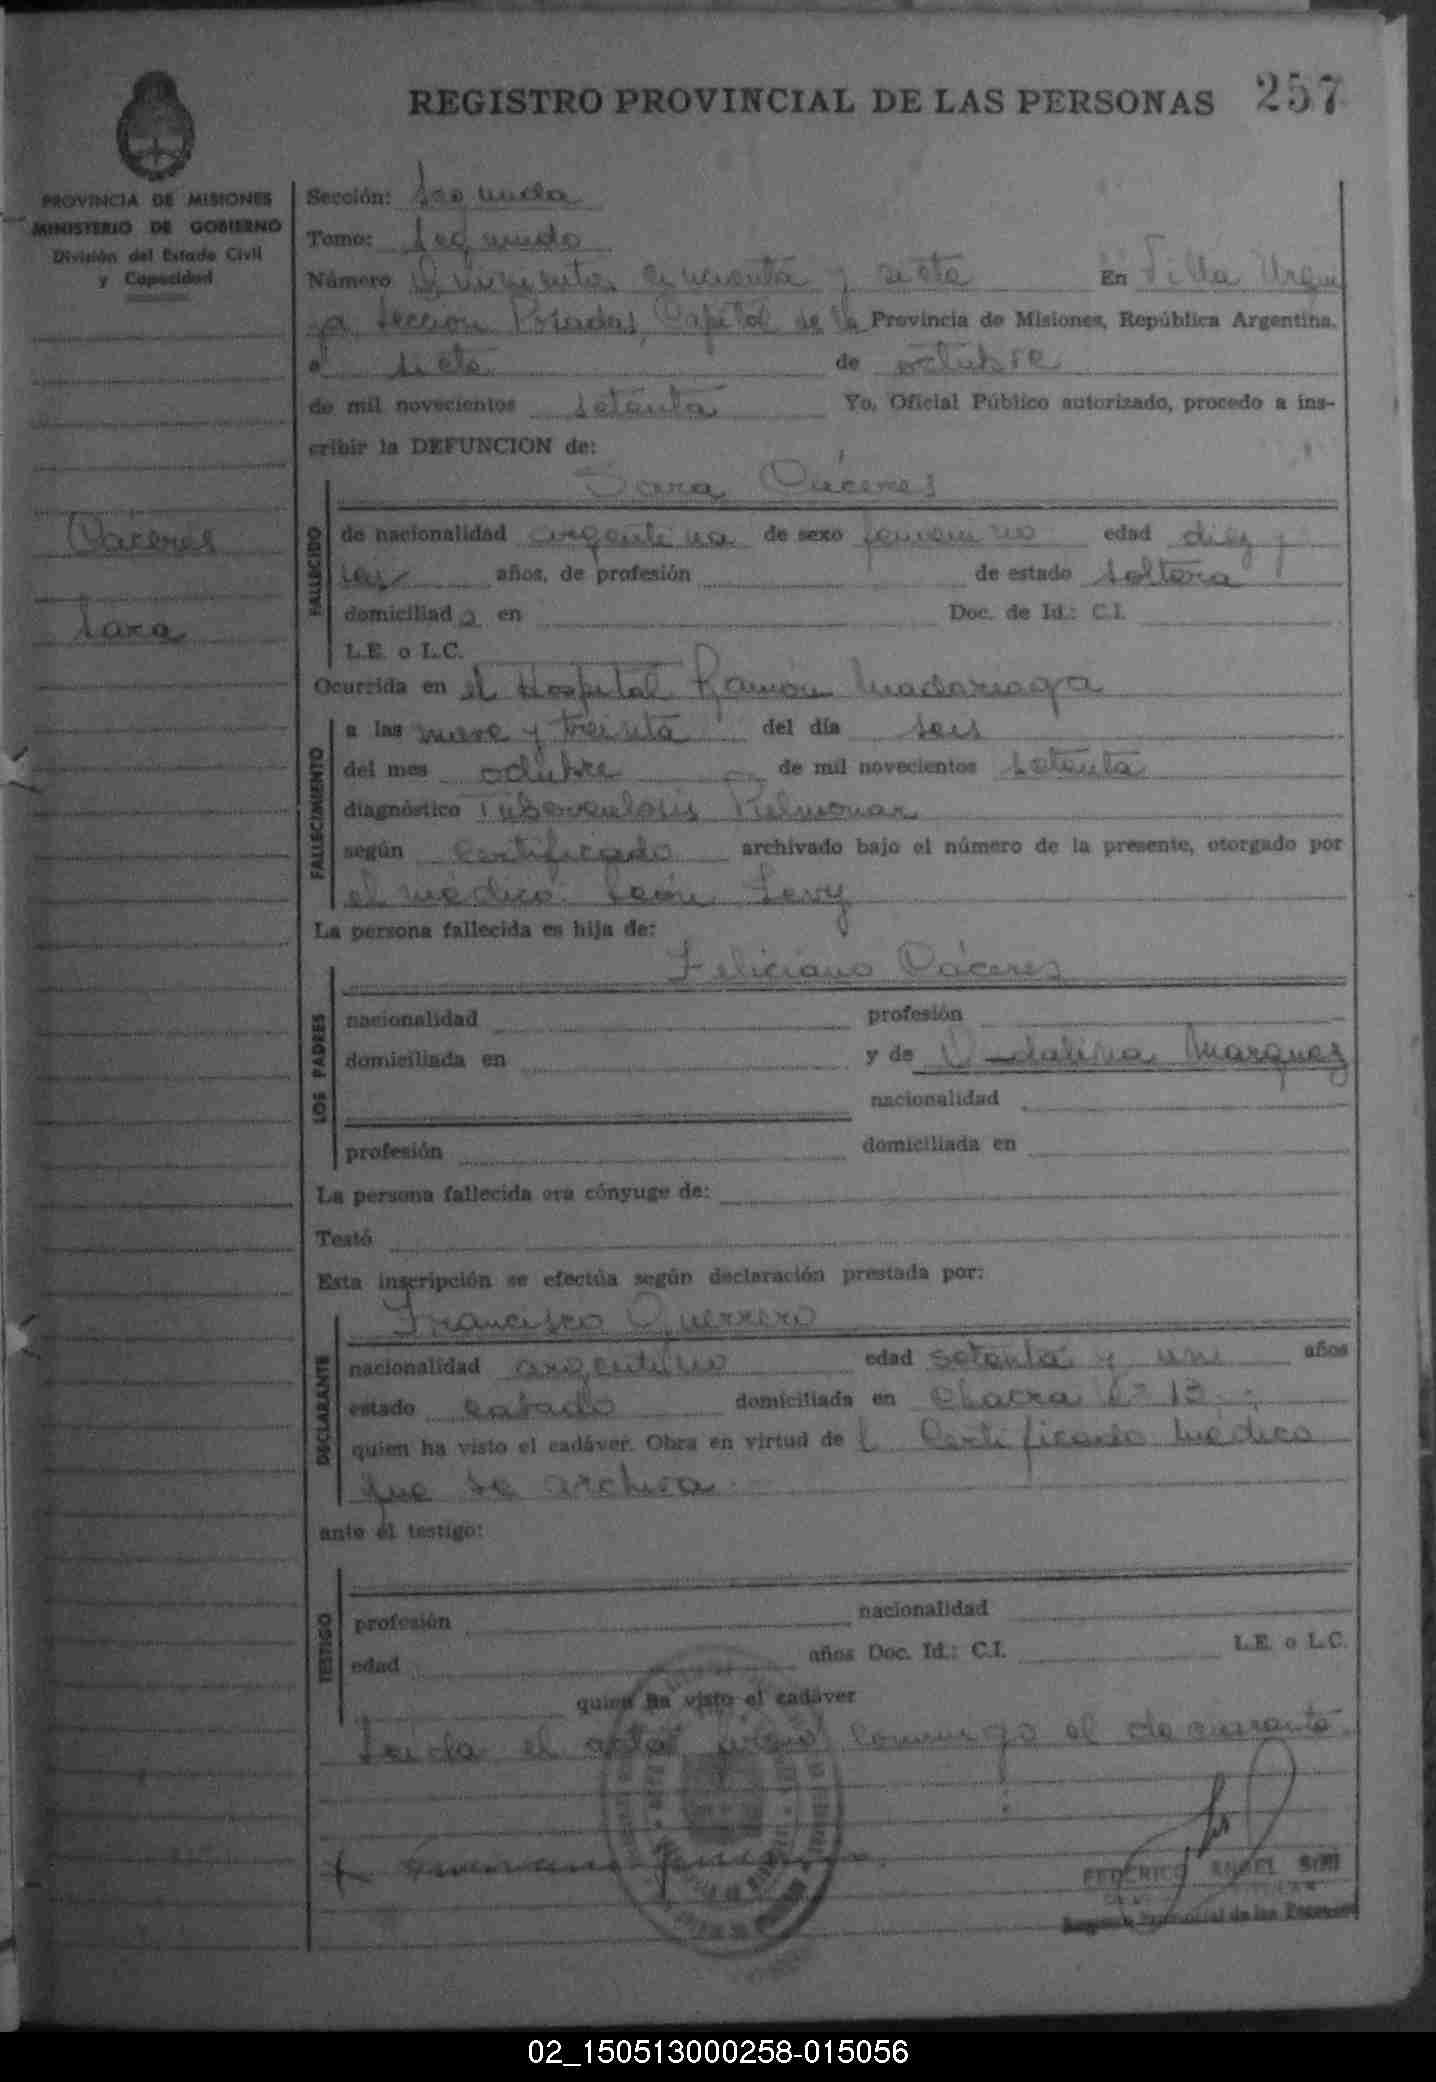 REGISTRO PROVINCIAL DE LAS PERSONAS 257
PROVINCIA DE MISIONES
MINISTERIO DE GOBIERNO
División del Estado Civil
y Capacidad
Caceres
Sara
Sección: Segunda
Tomo: Segundo
Número Doscientos cincuenta y siete En Villa Urqui
za Sección Posadas, Capital de la Provincia de Misiones, República Argentina,
a siete de octubre
de mil novecientos setenta Yo, Oficial Público autorizado, procedo a ins-
cribir la DEFUNCION de:
Sara Cáceres
FALLECIDO
de nacionalidad argentina de sexo femenino edad diez y
seis años, de profesión de estado soltera
domiciliada en Doc. de Id.: C.I.
L.E. o L.C.
Ocurrida en el Hospital Ramón Madariaga
FALLECIMIENTO
a las nueve y treinta del día seis
del mes octubre de mil novecientos setenta
diagnóstico Tuberculosis Pulmonar
según certificado archivado bajo el número de la presente, otorgado por
el médico León Levy
La persona fallecida es hija de:
Feliciano Cáceres
LOS PADRES
nacionalidad profesión
domiciliada en y de Marquez
nacionalidad
profesión domiciliada en
La persona fallecida era cónyuge de:
Testó
Esta inscripción se efectúa según declaración prestada por:
Francisco Guerrero
DECLARANTE
nacionalidad argentino edad setenta y un años
estado casado domiciliada en Chacra 13
quien ha visto el cadáver. Obra en virtud del Certificado médico
que se archiva
ante el testigo:
TESTIGO
profesión nacionalidad
edad años Doc. Id.: C.I. L.E. o L.C.
quien ha visto el cadáver
Leida el acta firmó conmigo el declarante.
FEDERICO ANGEL
Registro Provincial de las Personas
02_150513000258-015056